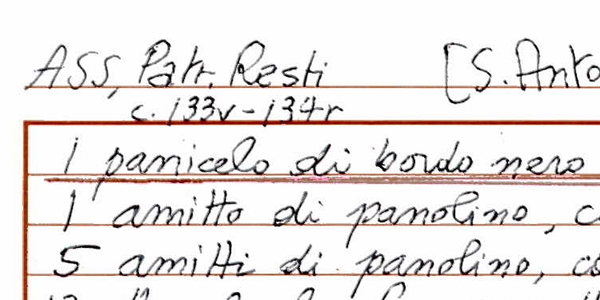 ASS, Patr. Resti [S. Anto
c. 133v - 134r
1 panicelo di bordo nero
1 amitto di panolino, c
5 amitti di panolino, co